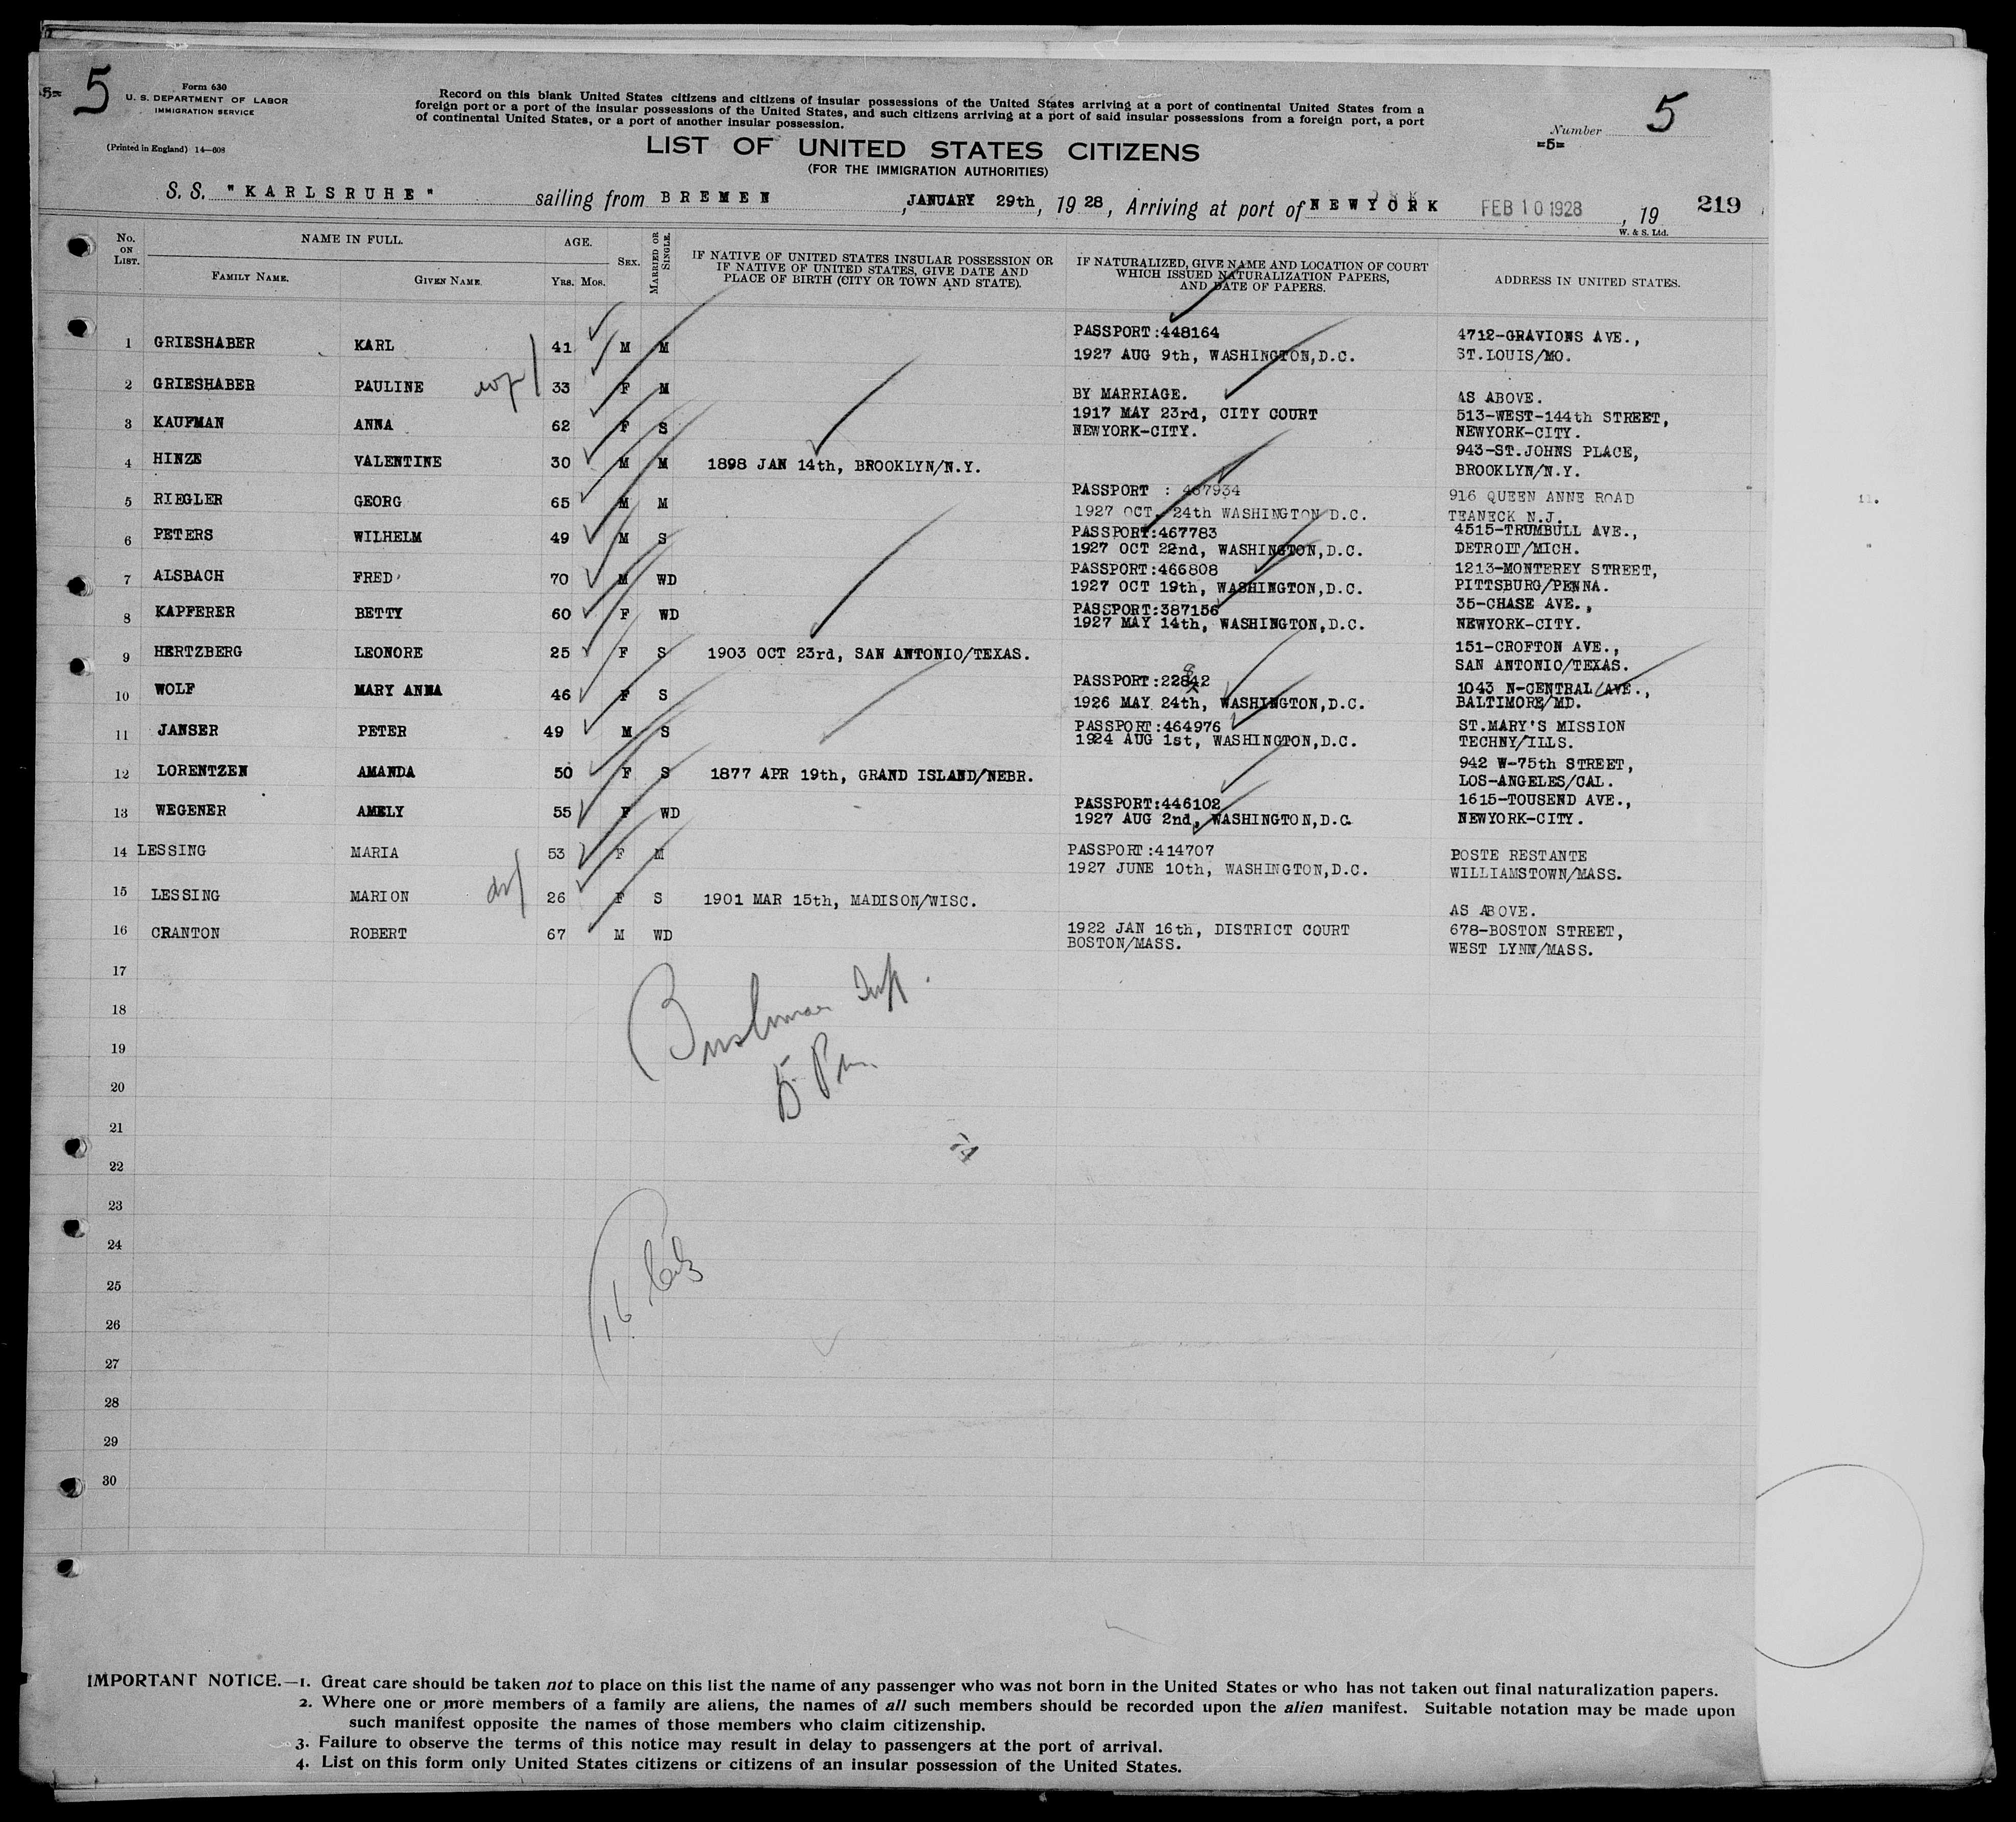 -5-
5
Form 630
U. S. DEPARTMENT OF LABOR
IMMIGRATION SERVICE
(Printed in England) 14—608
Record on this blank United States citizens and citizens of insular possessions of the United States arriving at a port of continental United States from a
foreign port or a port of the insular possessions of the United States, and such citizens arriving at a port of said insular possessions from a foreign port, a port
of continental United States, or a port of another insular possession.
Number 5
=5=
LIST OF UNITED STATES CITIZENS
(FOR THE IMMIGRATION AUTHORITIES)
S. S. "KARLSRUHE" sailing from BREMEN, JANUARY 29th, 1928, Arriving at port of NEWYORK FEB 10 1928, 19 219
W. & S. Ltd.
No. ON LIST. NAME IN FULL. AGE. SEX. MARRIED OR SINGLE. IF NATIVE OF UNITED STATES INSULAR POSSESSION OR IF NATIVE OF UNITED STATES, GIVE DATE AND PLACE OF BIRTH (CITY OR TOWN AND STATE). IF NATURALIZED, GIVE NAME AND LOCATION OF COURT WHICH ISSUED NATURALIZATION PAPERS, AND DATE OF PAPERS. ADDRESS IN UNITED STATES.
FAMILY NAME. GIVEN NAME. YRS. MOS.
1 GRIESHABER KARL 41 M M PASSPORT:448164 1927 AUG 9th, WASHINGTON,D.C. 4712-GRAVIONS AVE., ST.LOUIS/MO.
2 GRIESHABER PAULINE 33 F M BY MARRIAGE. AS ABOVE.
3 KAUFMAN ANNA 62 F S 1917 MAY 23rd, CITY COURT NEWYORK-CITY. 513-WEST-144th STREET, NEWYORK-CITY.
4 HINZE VALENTINE 30 M M 1898 JAN 14th, BROOKLYN/N.Y. 943-ST.JOHNS PLACE, BROOKLYN/N.Y.
5 RIEGLER GEORG 65 M M PASSPORT : 467934 1927 OCT. 24th WASHINGTON D.C. 916 QUEEN ANNE ROAD TEANECK N.J.
6 PETERS WILHELM 49 M S PASSPORT:467783 1927 OCT 22nd, WASHINGTON,D.C. 4515-TRUMBULL AVE., DETROIT/MICH.
7 ALSBACH FRED 70 M WD PASSPORT:466808 1927 OCT 19th, WASHINGTON,D.C. 1213-MONTEREY STREET, PITTSBURG/PENNA.
8 KAPFERER BETTY 60 F WD PASSPORT:387156 1927 MAY 14th, WASHINGTON,D.C. 35-CHASE AVE., NEWYORK-CITY.
9 HERTZBERG LEONORE 25 F S 1903 OCT 23rd, SAN ANTONIO/TEXAS. 151-CROFTON AVE., SAN ANTONIO/TEXAS.
10 WOLF MARY ANNA 46 F S PASSPORT:22842 1926 MAY 24th, WASHINGTON,D.C. 1043 N-CENTRAL AVE., BALTIMORE/MD.
11 JANSER PETER 49 M S PASSPORT:464976 1924 AUG 1st, WASHINGTON,D.C. ST.MARY'S MISSION TECHNY/ILLS.
12 LORENTZEN AMANDA 50 F S 1877 APR 19th, GRAND ISLAND/NEBR. 942 W-75th STREET, LOS-ANGELES/CAL.
13 WEGENER AMELY 55 F WD PASSPORT:446102 1927 AUG 2nd, WASHINGTON,D.C. 1615-TOUSEND AVE., NEWYORK-CITY.
14 LESSING MARIA 53 F M PASSPORT:414707 1927 JUNE 10th, WASHINGTON,D.C. POSTE RESTANTE WILLIAMSTOWN/MASS.
15 LESSING MARION 26 F S 1901 MAR 15th, MADISON/WISC. AS ABOVE.
16 CRANTON ROBERT 67 M WD 1922 JAN 16th, DISTRICT COURT BOSTON/MASS. 678-BOSTON STREET, WEST LYNN/MASS.
17
18
19
20
21
22
23
24
25
26
27
28
29
30
16
IMPORTANT NOTICE.—1. Great care should be taken not to place on this list the name of any passenger who was not born in the United States or who has not taken out final naturalization papers.
2. Where one or more members of a family are aliens, the names of all such members should be recorded upon the alien manifest. Suitable notation may be made upon
such manifest opposite the names of those members who claim citizenship.
3. Failure to observe the terms of this notice may result in delay to passengers at the port of arrival.
4. List on this form only United States citizens or citizens of an insular possession of the United States.